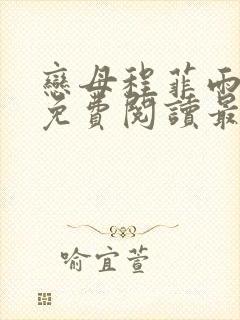 戀母程菲雨
免費閱讀最
喻宜萱